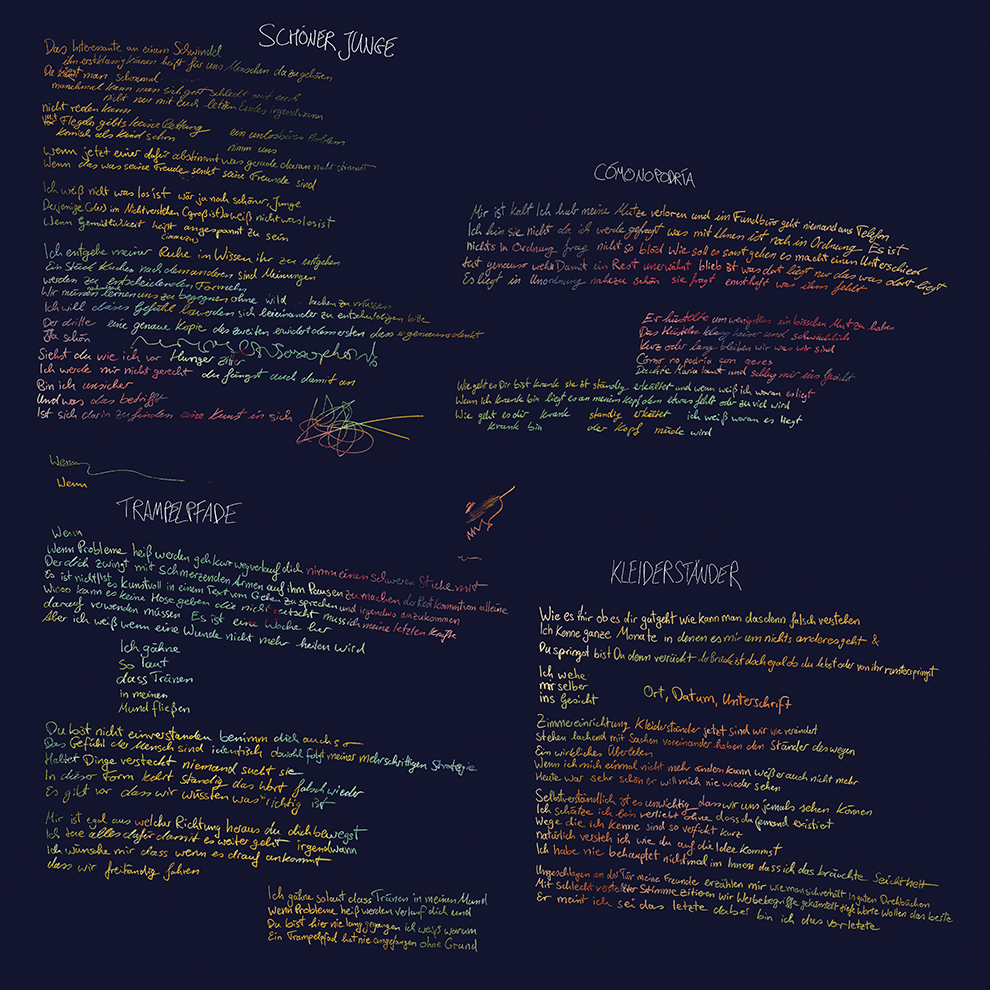 SCHÖNER JUNGE
Das Interessante an einem Schwindel
ihn erstklassig können heißt für uns Menschen dazugehören
Da man schonmal
manchmal kann man sich ganz schlecht mit euch
nicht nur mit Euch letzten Endes irgendwann
nicht reden kann
Flegeln gibts keine Rettung
komisch als Kind schon
ein unlösbares Problem
nimm uns
Wenn jetzt einer dafür abstimmt was gerade daran nicht stimmt
Wenn das was seine Freude senkt seine Freunde sind
Ich weiß nicht was los ist wär ja noch schöner, Junge
Derjenige (der) im Nichtverstehen (groß ist) weiß nicht was los ist
Wenn Gemütlichkeit heißt angespannt zu sein
(immerzu)
Ich entgehe meiner Ruhe im Wissen ihr zu entgehen
Ein Stück Kuchen nach dem anderen sind Meinungen
werden zu entscheidenden Formeln
Wir müssen lernen uns zu begegnen ohne wild lachen zu müssen
Ich will dieses Gefühl loswerden sich beieinander zu entschuldigen bitte
Der dritte eine genaue Kopie des zweiten erwidert dem ersten dass er genauso denkt
Ja schön
Siehst du wie ich vor Hunger zitter
Ich werde mir nicht gerecht du fängst auch damit an
Bin ich unsicher
Und was das betrifft
Ist sich darin zu finden eine Kunst in sich
CÓMONOPODRÍA
Mir ist kalt Ich hab meine Mütze verloren und im Fundbüro geht niemand ans Telefon
Ich bin sie nicht da ich werde gefragt was mit Ihnen ist noch in Ordnung Es ist
nichts in Ordnung frag nicht so blöd Wie soll es sonst gehen es macht einen Unterschied
tut genauso weh Damit ein Rest unerwähnt blieb ist was dort liegt nur das was dort liegt
Es liegt in Unordnung nahezu schön sie fragt ernsthaft was ihm fehlt
Er hüstelte um wenigstens ein bisschen Mut zu haben
Das Hüsteln klang heiser und schwächlich
Kurz oder lang bleiben wir was wir sind
Cómo no podría con
Maria lauut und schlag mir ins Gesicht
Wie geht es Dir bist krank sie ist ständig erkältet und wenn weiß ich woran es liegt
Wenn Ich krank bin liegt es an meinem Kopf dem etwas fehlt oder zu viel wird
Wie geht es dir krank ständig erkältet ich weiß woran es liegt
krank bin der Kopf müde wird
Wenn
Wenn
TRAMPELPFADE
Wenn
Wenn Probleme heiß werden geh kurz weg verlauf dich nimm einen schweren Stuhl mit
Der dich zwingt mit schmerzenden Armen auf ihm Pausen zu machen der Rest kommt von alleine
Es ist nicht/Ist es kunstvoll in einem Text vom Gehen zu sprechen und irgendwo anzukommen
Wieso kann es keine Hose geben die nicht rutscht muss ich meine letzten Kräfte
darauf verwenden müssen Es ist eine Woche her
Aber ich weiß wenn eine Wunde nicht mehr heilen wird
Ich gähne
So laut
dass Tränen
in meinen
Mund fließen
Du bist nicht einverstanden benimm dich auch so
Das Gefühl der Mensch sind identisch obwohl folgt meiner mehrschrittigen Strategie
Haltet Dinge versteckt niemand sucht sie
In dieser Form kehrt ständig das Wort falsch wieder
Es gibt vor dass wir wüssten was richtig ist
Mir ist egal aus welcher Richtung heraus du dich bewegst
Ich tue alles dafür damit es weiter geht irgendwann
Ich wünsche mir dass wenn es drauf ankommt
dass wir freihändig fahren
Ich gähne so laut dass Tränen in meinen Mund
Wenn Probleme heiß werden verlauf dich und
Du bist hier nie lang gegangen ich weiß warum
Ein Trampelpfad hat nie angefangen ohne Grund
KLEIDERSTÄNDER
Wie es ihr ob es dir gut geht wie kann man das denn falsch verstehen
Ich kenne ganze Monate in denen es mir um nichts anderes geht &
Du springst bist Du denn verrückt der Brücke ist doch egal ob du lebst oder von ihr runterspringst
Ich wehe
mir selber
ins Gesicht
Ort, Datum, Unterschrift
Zimmereinrichtung Kleiderständer jetzt sind wir wie verändert
Stehen lachend mit Sachen voreinander haben den Ständer deswegen
Ein wirkliches Überleben
Wenn ich mich einmal nicht mehr ändern kann weiß er auch nicht mehr
Heute war sehr schön er will mich nie wieder sehen
Selbstverständlich ist es unwichtig dass wir uns jemals sehen können
Ich schätze ich bin verliebt ohne dass da jemand existiert
Wege die ich kenne sind so verfickt kurz
natürlich versteh ich wie du auf die Idee kommst
Ich habe nie behauptet nichtmal im Innen dass ich das bräuchte Seichtheit
Ungeschlagen an der Tür meine Freunde erzählen mir wie man sich verhält in guten Drehbüchern
Mit schlecht verstellter Stimme zitieren wir Werbebegriffe gekünstelt tiefe Worte wollen das beste
Er meint ich sei das letzte dabei bin ich das vorletzte